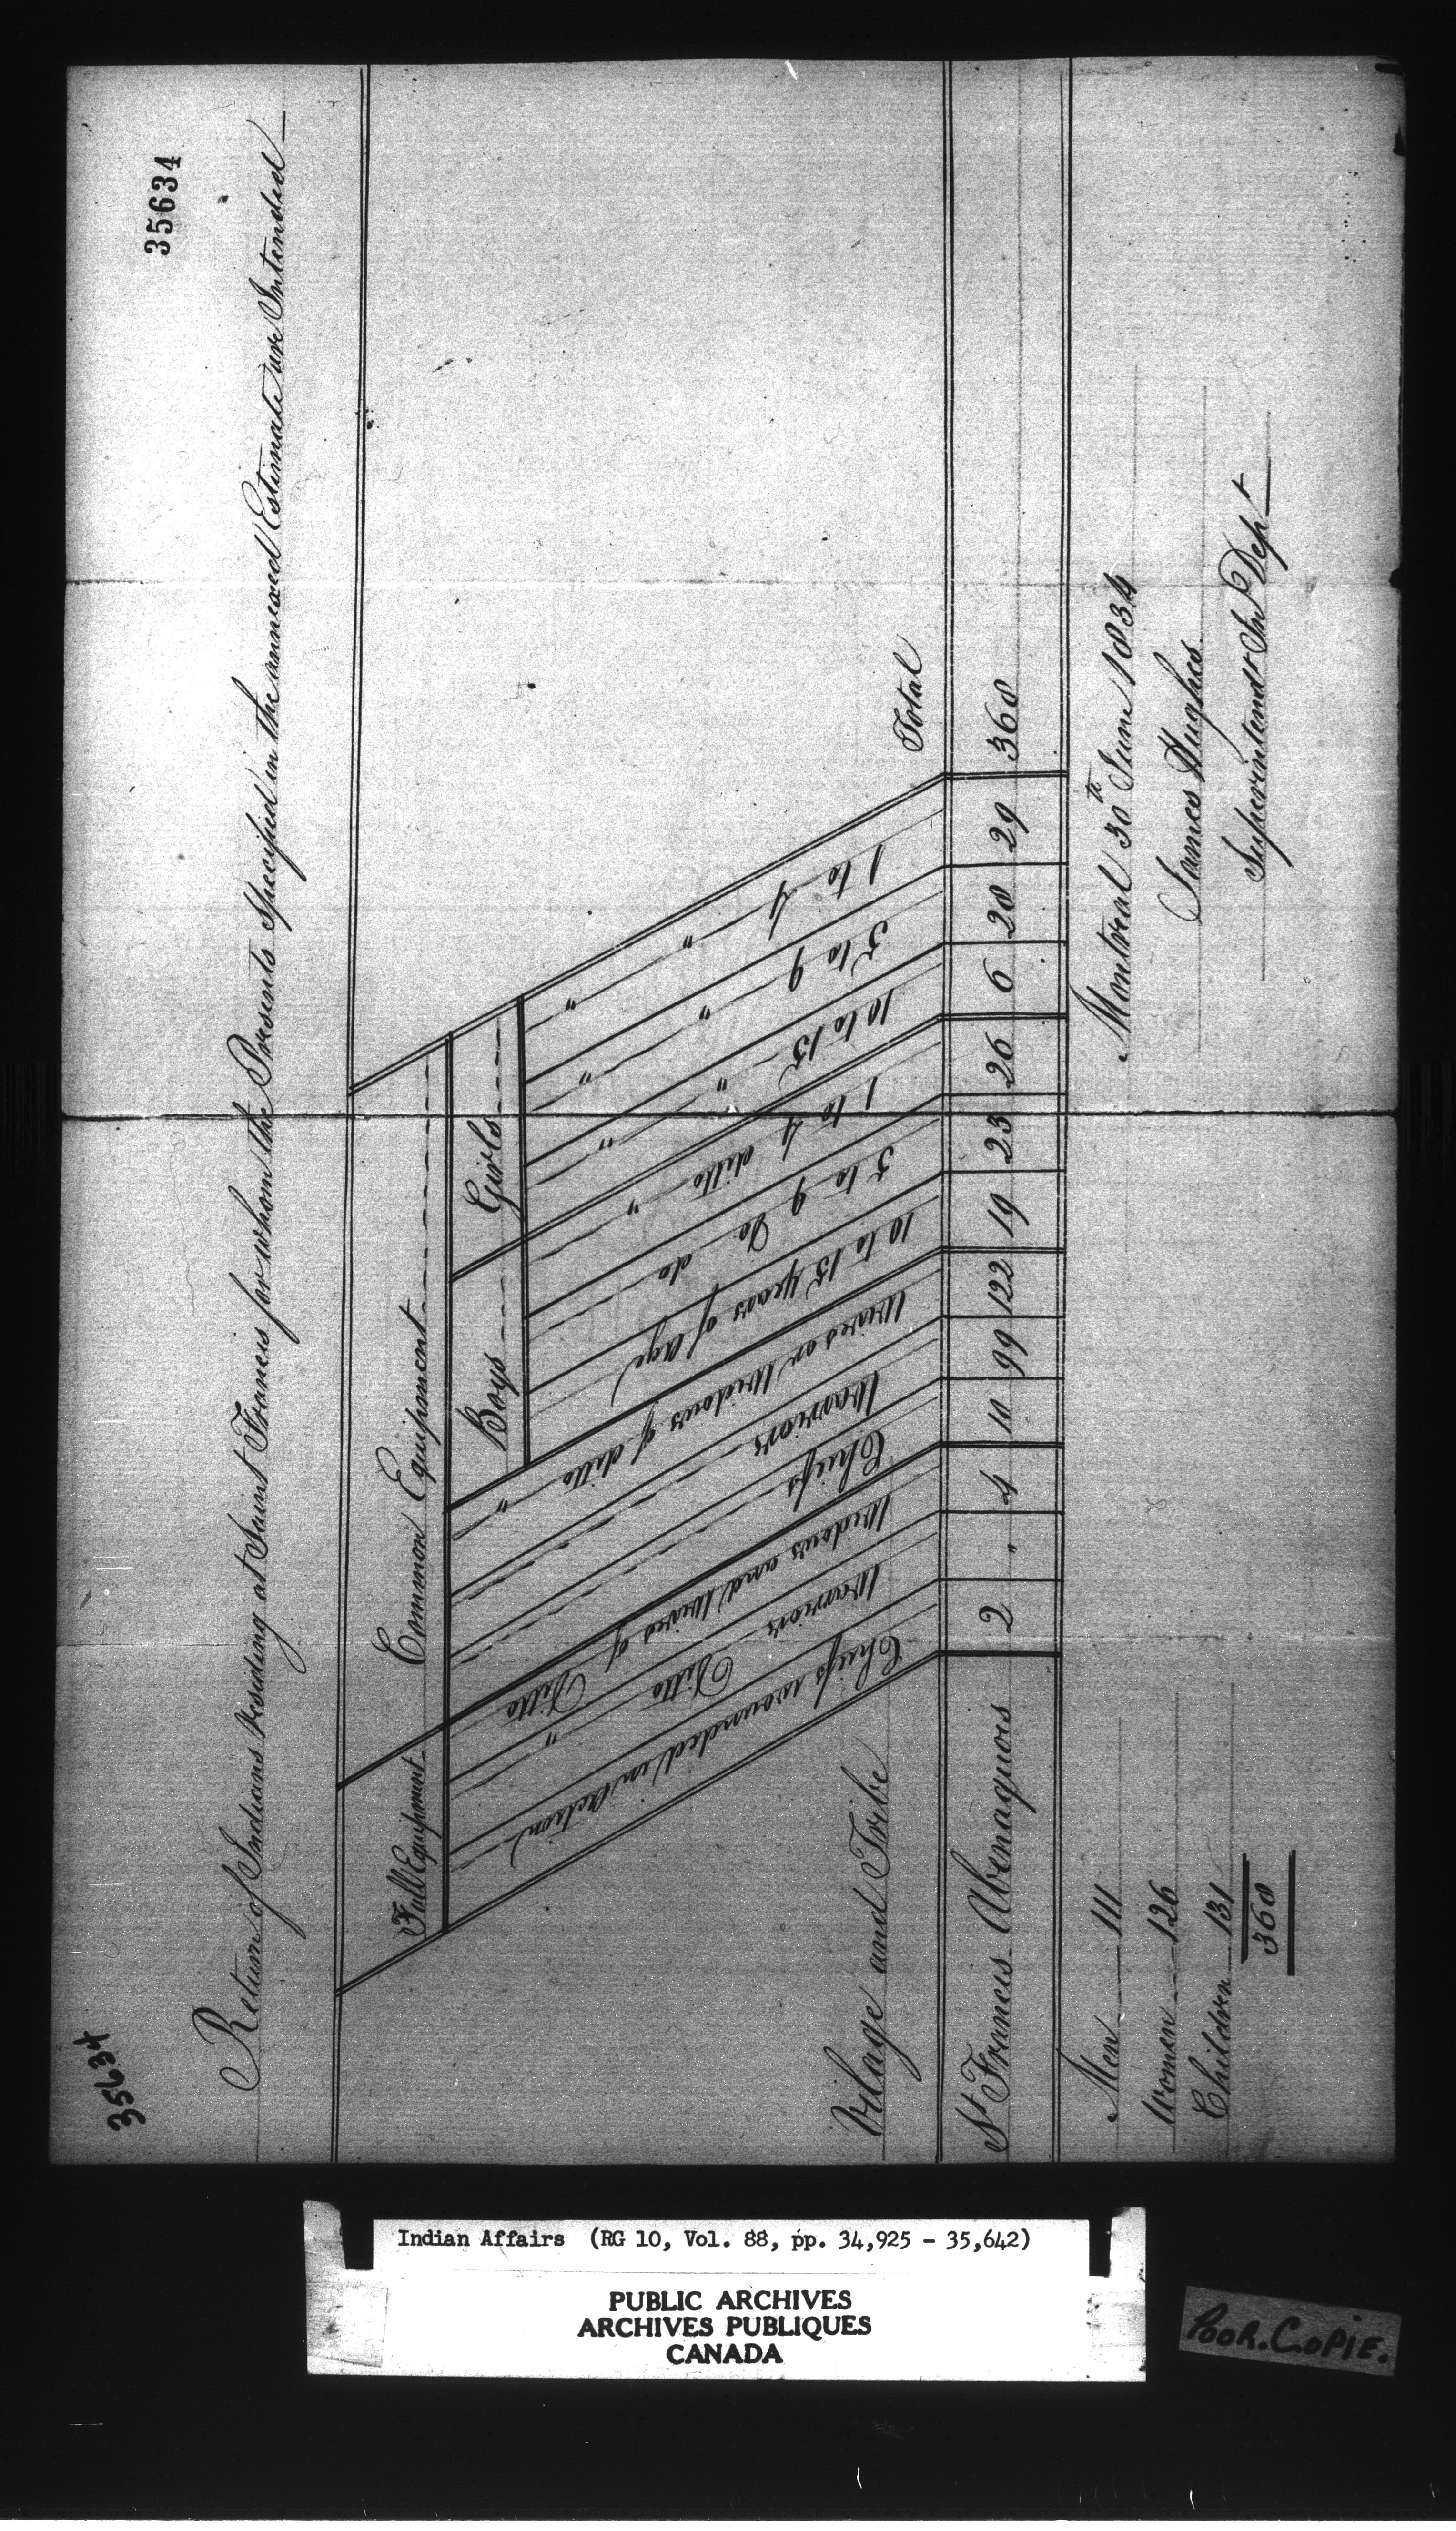 35634
35634
Return of Indians residing at Saint Francis for whom the Presents specified in the annexed Estimate are Intended
Full Equipment
Common Equipment
Boys
Girls
Vilage and Tribe
Chiefs wounded in Action
Warriors Ditto "
Widows and Wives of Ditto
Chiefs
Warriors
Wives or Widows of ditto "
10 to 15 years of Age
5 to 9 Do do
1 to 4 ditto "
10 to 15 " "
5 to 9 " "
1 to 4 " "
Total
St Francis Abenaquois 2 " 4 10 99 122 19 23 26 6 28 29 368
Men 111
Women 126
Children 131
368
Montreal 30th June 1834
James Hughes
Superintendt In Dept
Indian Affairs (RG 10, Vol. 88, pp. 34,925 - 35,642)
PUBLIC ARCHIVES
ARCHIVES PUBLIQUES
CANADA
POOR. COPIE.